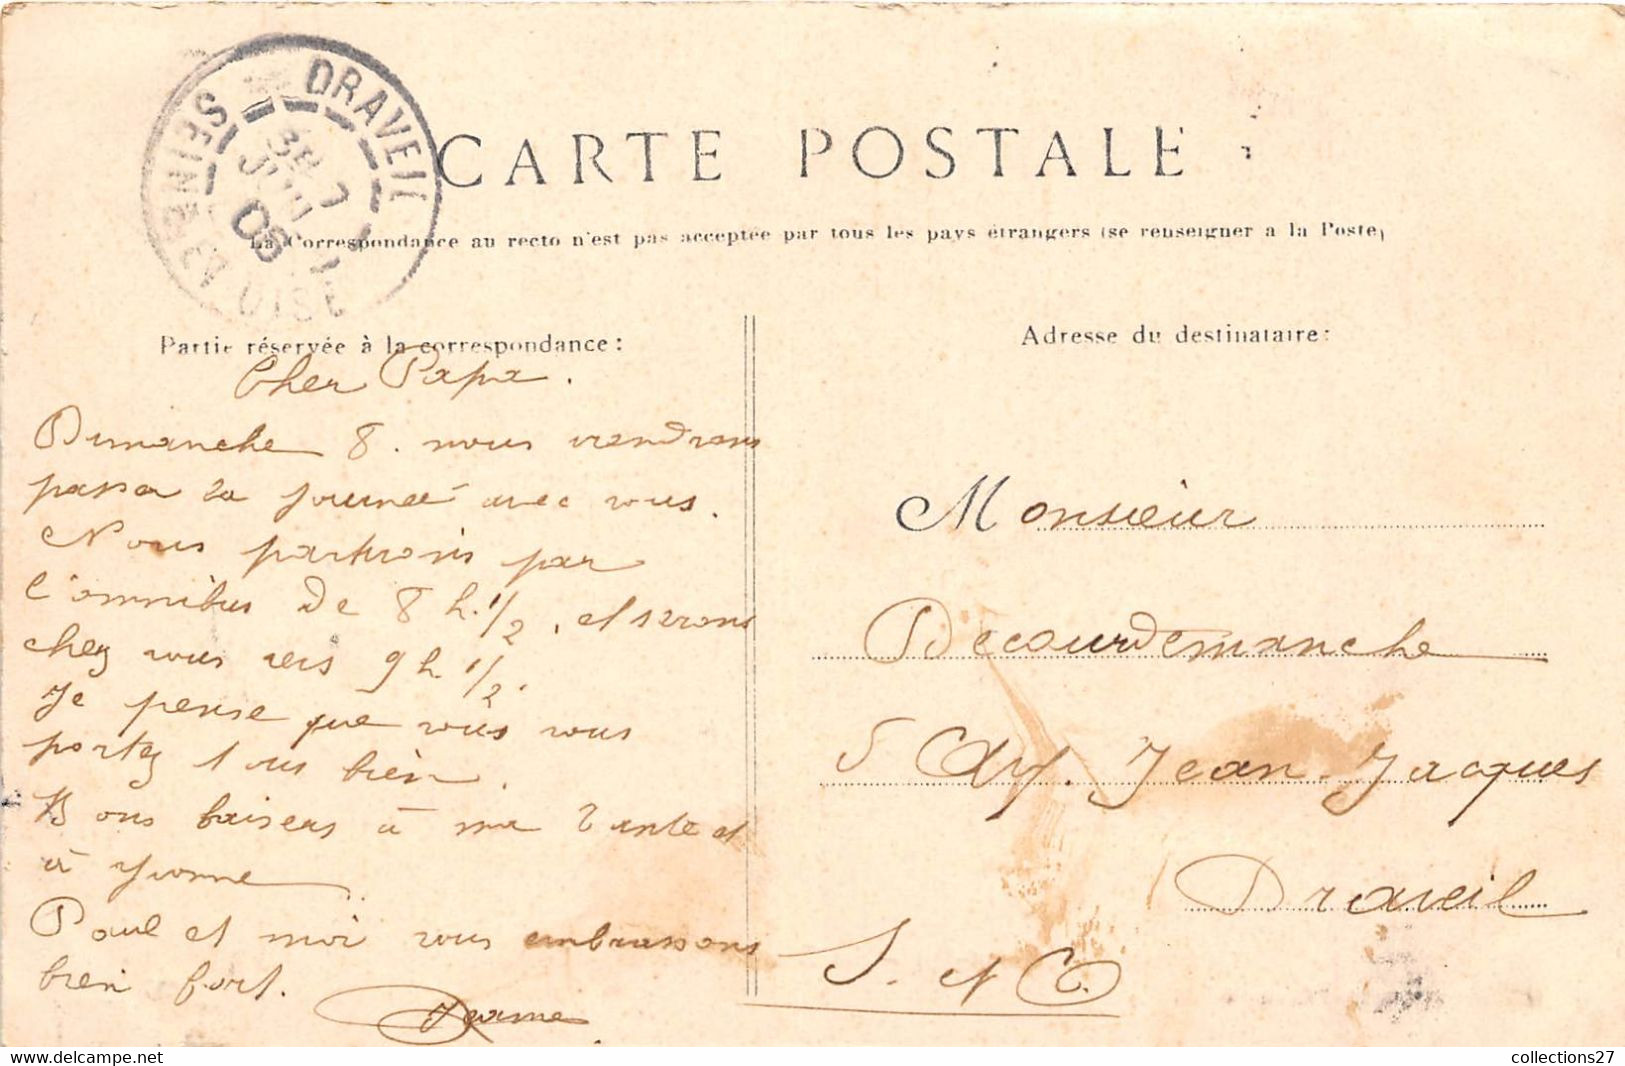 DRAVEIL
SEINE ET OISE
7
JUIL
06
CARTE POSTALE
La Correspondance au recto n'est pas acceptée par tous les pays étrangers (se renseigner a la Poste)
Partie réservée à la correspondance :
Cher Papa.
Dimanche 8. nous viendrons
passer la journée avec vous.
Nous partirons par
l'omnibus de 8 h. 1/2, et serons
chez vous vers 9 h 1/2.
Je pense que vous vous
portez tous bien.
Bons baisers à ma Tante et
à Yvonne
Paul et moi vous embrassons
bien fort.
Jeanne
Adresse du destinataire :
Monsieur
Decourdemanche
5 Av. Jean-Jacques
Draveil
S. et O.
collections27